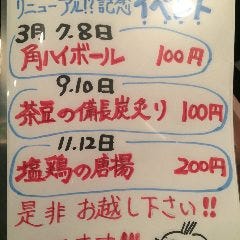 リニューアル!!記念
イベント
3月7.8日
角ハイボール 100円
9.10日
茶豆の備長炭炙り 100円
11.12日
塩鶏の唐揚 200円
是非お越し下さい!!